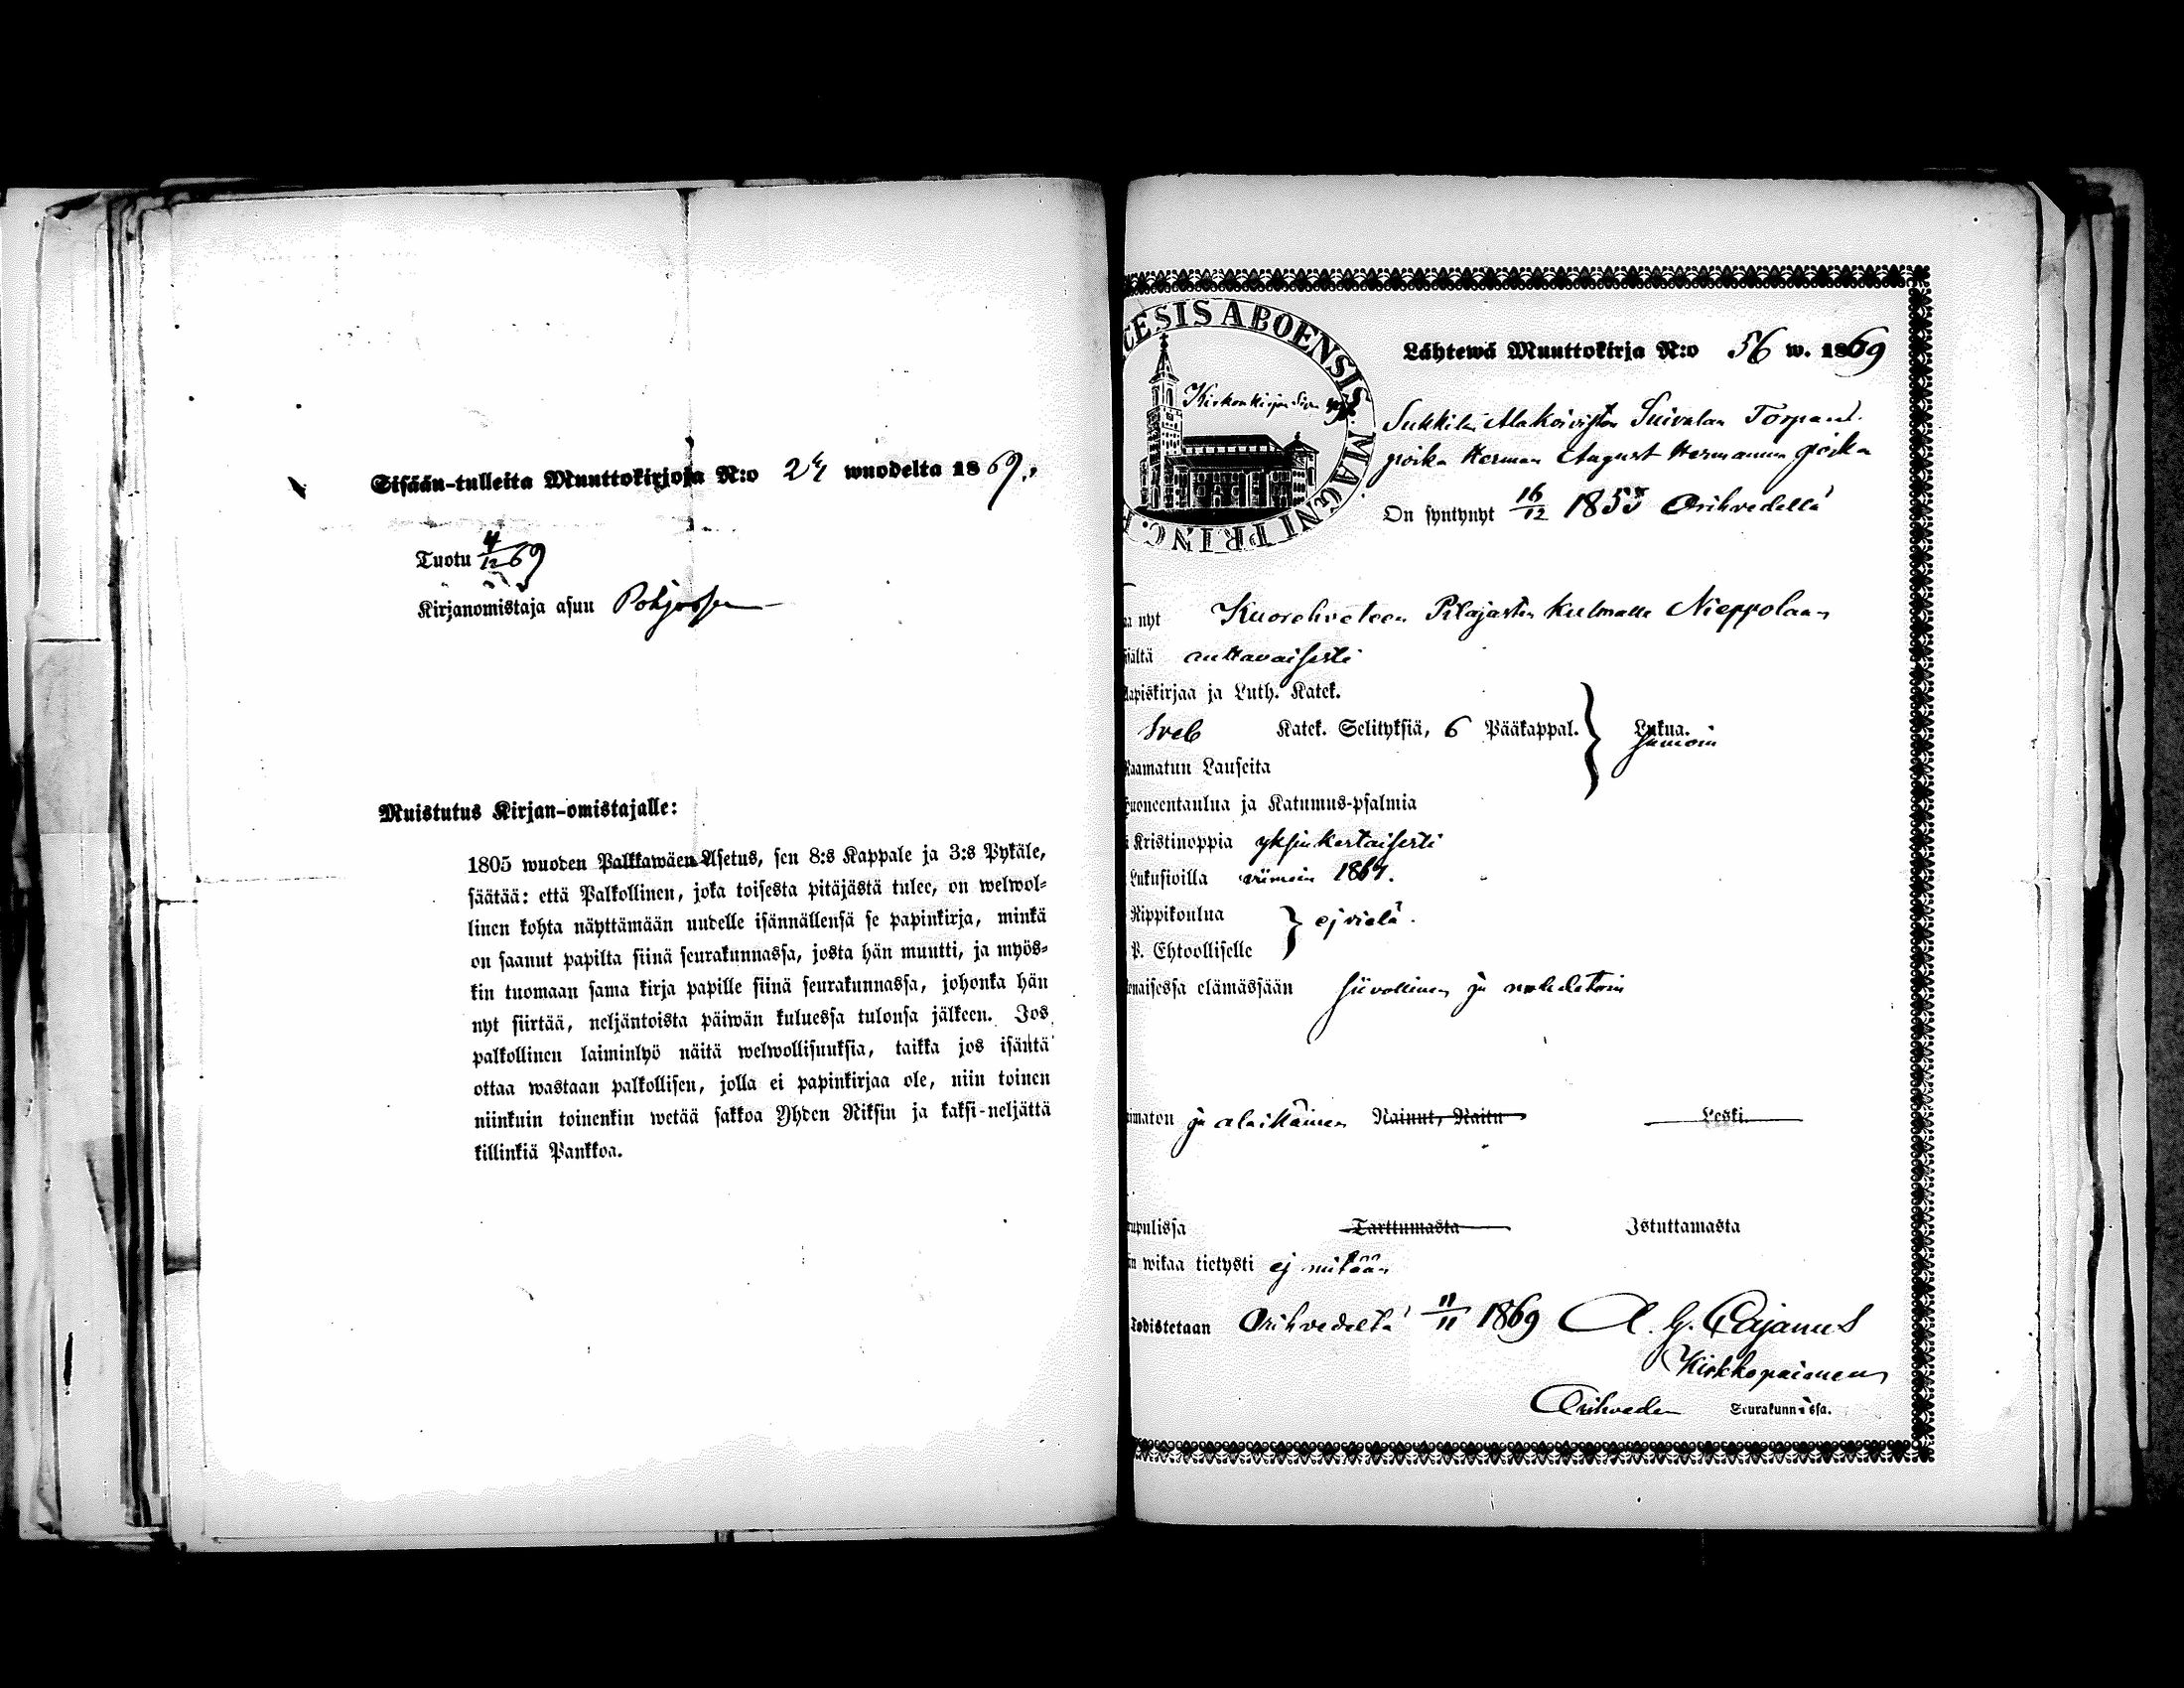 Sisään-tulleita Muuttokirjoja N:o 24 wuodelta 1869.
Tuotu 4/12 69
Kirjanomistaja asuu
Muistutus Kirjan-omistajalle:
1805 wuoden Palkkawäen Asetus, sen 8:s Kappale ja 3:s Pykäle,
säätää: että Palkollinen, joka toisesta pitäjästä tulee, on welwol-
linen kohta näyttämään uudelle isännällensä se papinkirja, minkä
on saanut papilta siinä seurakunnassa, josta hän muutti, ja myös-
kin tuomaan sama kirja papille siinä seurakunnassa, johonka hän
nyt siirtää, neljäntoista päiwän kuluessa tulonsa jälkeen. Jos
palkollinen laiminlyö näitä welwollisuuksia, taikka jos isäntä
ottaa wastaan palkollisen, jolla ei papinkirjaa ole, niin toinen
niinkuin toinenkin wetää sakkoa Yhden Riksin ja kaksi-neljättä
killinkiä Pankkoa.
CESIS ABOENSIS. MAGNI PRINC. F
Kirkonkirjan Siv.
Lähtewä Muuttokirja N:o 56 w. 1869
Sukkilan Alakoiviston Torpan
poika Herman August Hermannin poika
On syntynyt 16/12 1855 Orihvedellä
a nyt Kuorehveteen Pilajasten kulmalle Nieppolaan
ältä auttavaisesti
apiskirjaa ja Luth. Katek.
Sveb Katek. Selityksiä, 6 Pääkappal. Lukua.
samoin
Raamatun Lauseita
uoneentaulua ja Katumus-psalmia
Kristinoppia yksinkertaisesti
Lukusioilla viimein 1869.
Rippikoulua ej vielä.
P. Ehtoolliselle
naisessa elämässään siivollinen ja nuhdetoin
imaton ja alaikäinen Nainut, Naitu Leski.
upulissa Tarttumasta Istuttamasta
n wikaa tietysti ej mitään
Todistetaan Orihvedeltä 11/11 1869 A. G. Cajanus
Kirkkopaimen
Orihveden Seurakunnassa.